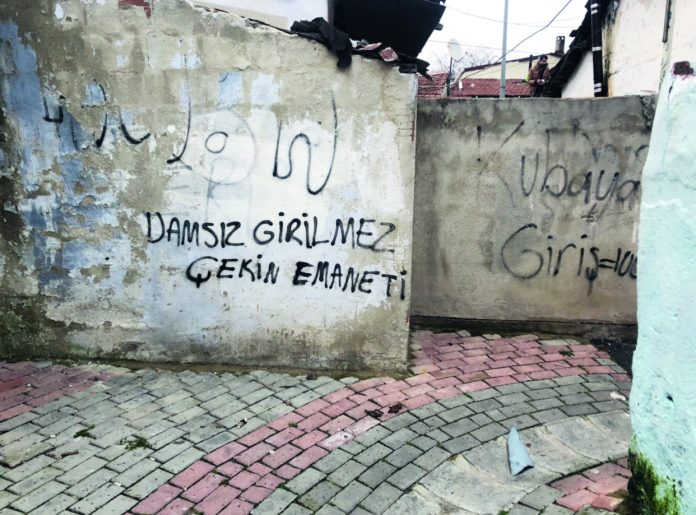 DAMSIZ GİRİLMEZ
ÇEKİN EMANETİ
Kubaya
Giriş=100